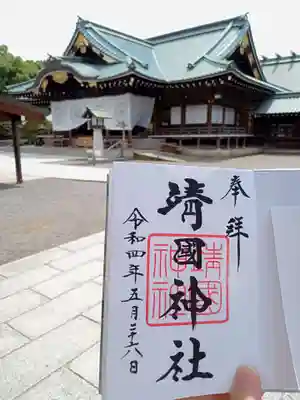 奉拝
靖國神社
靖國神社
令和四年五月二十八日